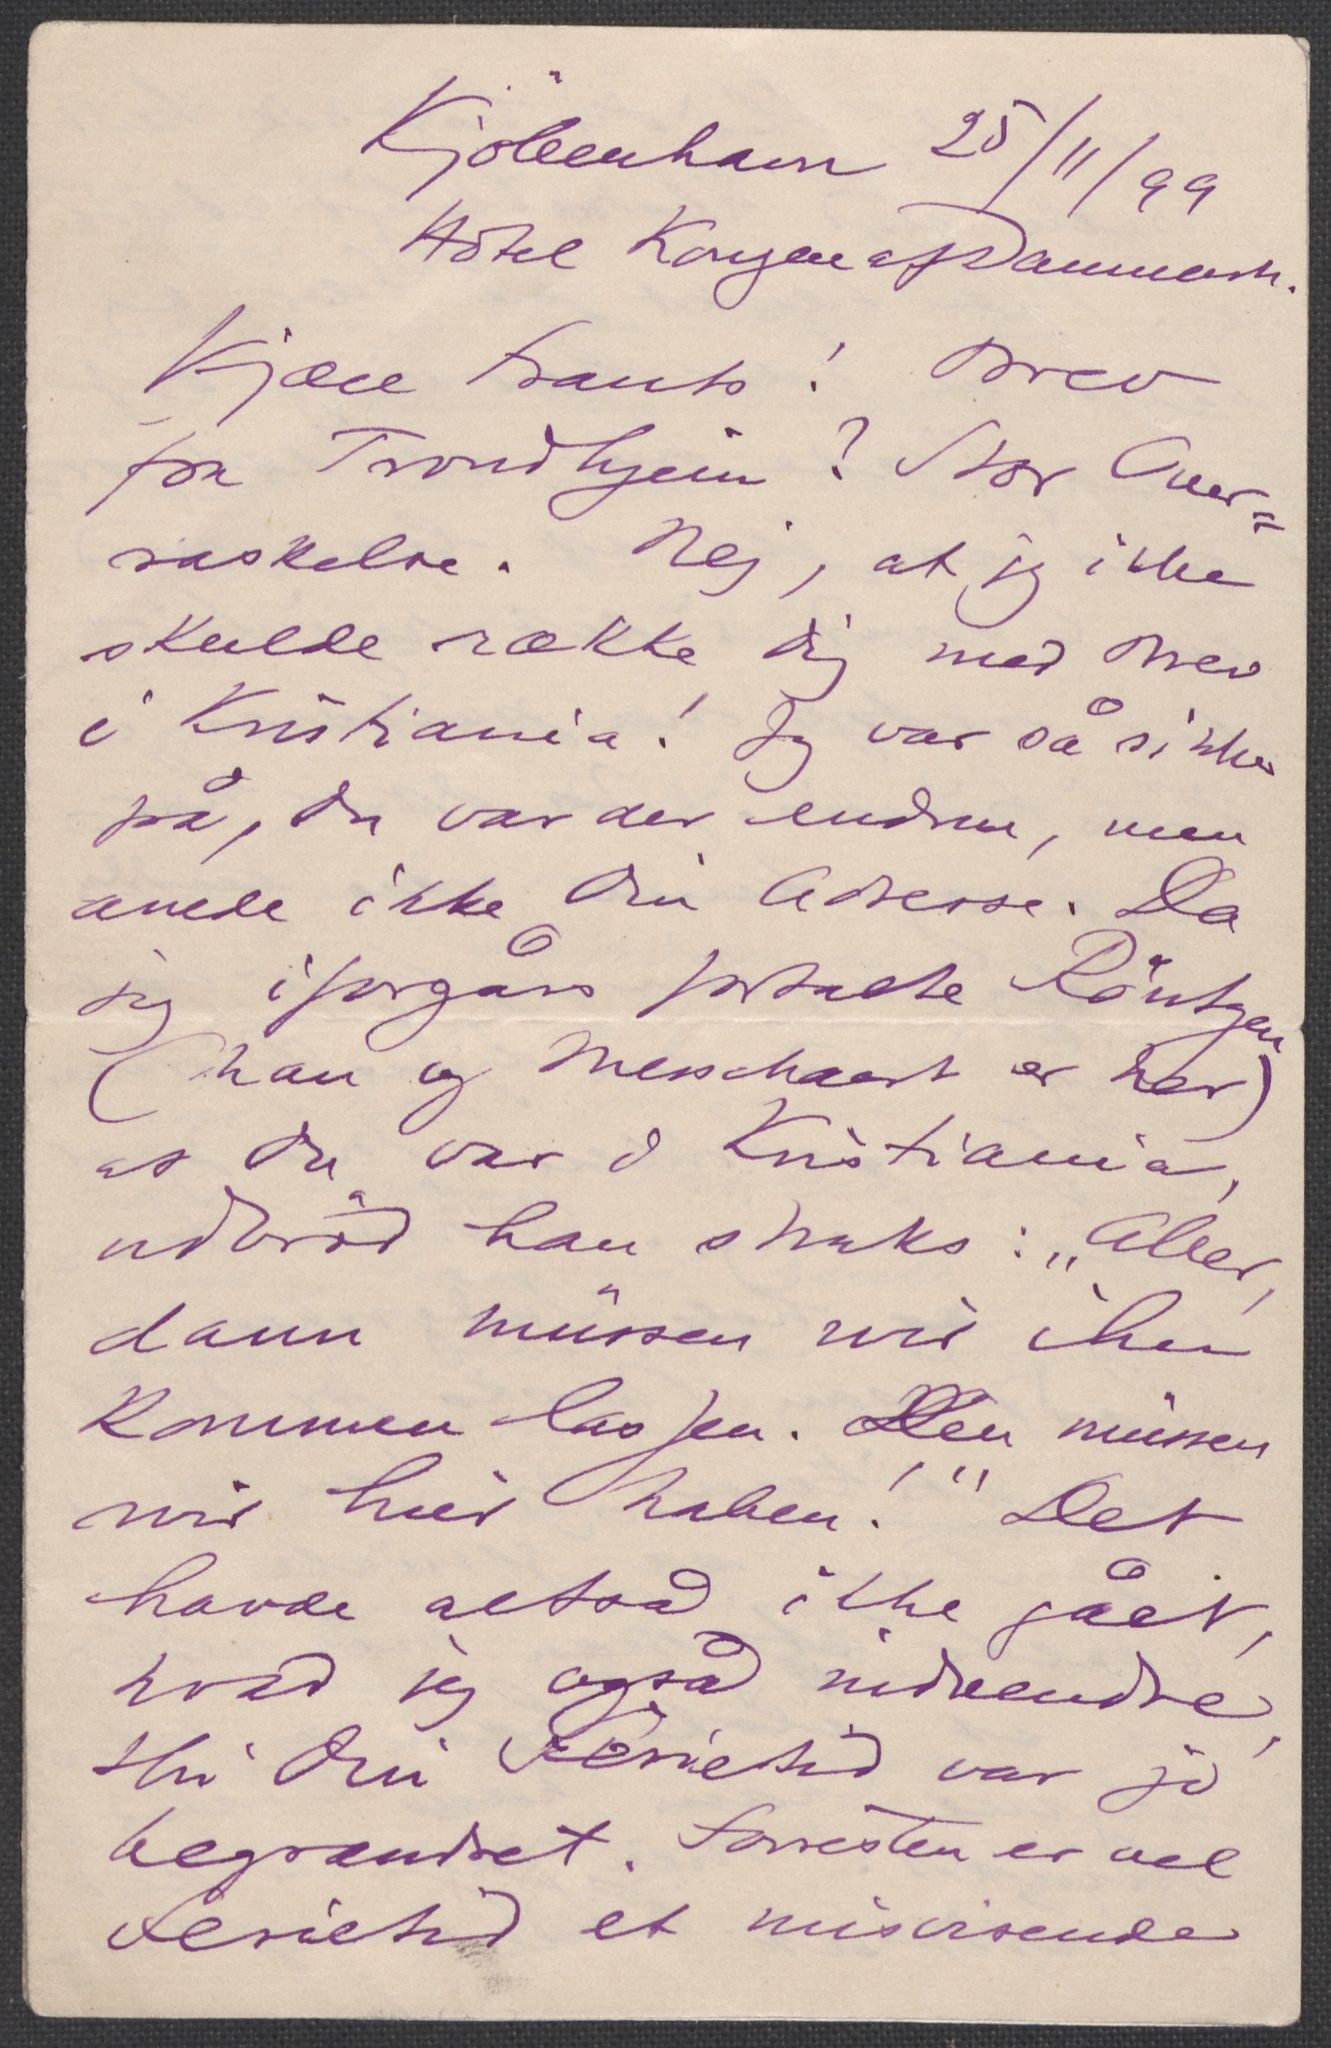 Kjöbenhavn 25/11/99
Hôtel Kongen af Danmark.
Kjære Frants! Brev
fra Trondhjem? Stor Over=
raskelse. Nej, at jeg ikke
skulde række Dig med Brev
i Kristiania! Jg var så sikker
på, Du var der endnu, men
anede ikke Din Adresse. Da
jeg iforgårs fortalte Röntgen
(han og Messchaert er her)
at Du var i Kristiania,
udbröd han straks: „Aber,
dann müssen wir ihn
kommen lassen. Den müssen
wir hier haben!" Det
havde altså ikke gået,
hvad jeg også indvendte,
thi Din Ferietid var jo
begrændset. Forresten er vel
Ferietid et misvisende